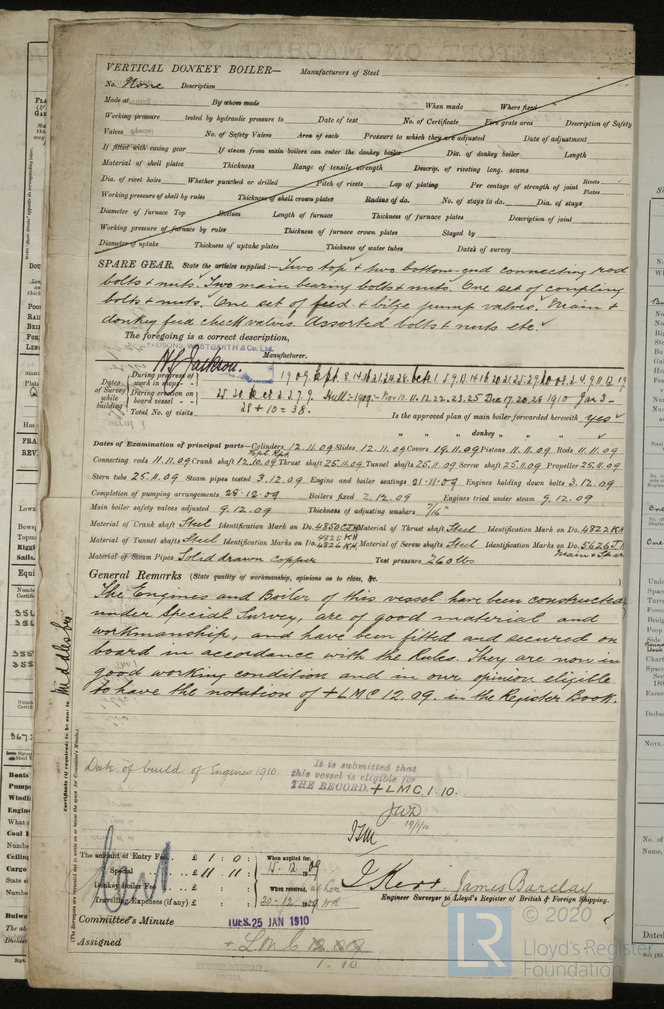 VERTICAL DONKEY BOILER— Manufacturers of Steel
No. None Description
Made at By whom made When made Where fixed
Working pressure tested by hydraulic pressure to Date of test No. of Certificate Fire grate area Description of Safety
Valves No. of Safety Valves Area of each Pressure to which they are adjusted Date of adjustment
If fitted with easing gear If steam from main boilers can enter the donkey boiler Dia. of donkey boiler Length
Material of shell plates Thickness Range of tensile strength Descrip. of riveting long. seams
Dia. of rivet holes Whether punched or drilled Pitch of rivets Lap of plating Per centage of strength of joint Rivets Plates
Working pressure of shell by rules Thickness of shell crown plates Radius of do. No. of stays to do. Dia. of stays
Diameter of furnace Top Bottom Length of furnace Thickness of furnace plates Description of joint
Working pressure of furnace by rules Thickness of furnace crown plates Stayed by
Diameter of uptake Thickness of uptake plates Thickness of water tubes Date of survey
SPARE GEAR. State the articles supplied:— Two top + two bottom-end connecting rod
bolts + nuts. Two main bearing bolts + nuts. One set of coupling
bolts + nuts. One set of feed + bilge pump valves. Main +
donkey feed check valves. Assorted bolts + nuts etc.
The foregoing is a correct description,
WESTGARTH & Co. Ltd.
Manufacturer.
Dates of Survey while building
During progress of work in shops - -
During erection on board vessel - - -
Total No. of visits 28 + 10 = 38.
Is the approved plan of main boiler forwarded herewith yes
" " " donkey " " "
Dates of Examination of principal parts—Cylinders 12.11.09 Slides 12.11.09 Covers 19.11.09 Pistons 11.11.09 Rods 11.11.09
Connecting rods 11.11.09 Crank shaft 12.10.09 Thrust shaft 25.11.09 Tunnel shafts 25.11.09 Screw shaft 25.11.09 Propeller 25.11.09
Stern tube 25.11.09 Steam pipes tested 3.12.09 Engine and boiler seatings 21.11.09 Engines holding down bolts 3.12.09
Completion of pumping arrangements 28.12.09 Boilers fixed 2.12.09 Engines tried under steam 9.12.09
Main boiler safety valves adjusted 9.12.09 Thickness of adjusting washers 7/16"
Material of Crank shaft Steel Identification Mark on Do. 4850CJH Material of Thrust shaft Steel Identification Mark on Do. 4822KH
Material of Tunnel shafts Steel Identification Marks on Do. 4825KH 4826KH Material of Screw shafts Steel Identification Marks on Do. 5626JH
Material of Steam Pipes Solid drawn copper Test pressure 260 lbs Main + Spare
General Remarks (State quality of workmanship, opinions as to class, &c.
The Engines and Boiler of this vessel have been constructed
under Special Survey, are of good material and
workmanship, and have been fitted and secured on
board in accordance with the Rules. They are now in
good working condition and in our opinion eligible
to have the notation of + LMC 12.09. in the Register Book.
Middlesbro
Certificate (if required) to be sent to
(The Surveyors are requested not to write on or below the space for Committee's Minute.)
Date of build of Engines 1910.
It is submitted that
this vessel is eligible for
THE RECORD. + LMC 1.10.
JWD
19/1/10
The amount of Entry Fee . . £ 1 : 0 :
Special . . . . £ 11 : 11 :
Donkey Boiler Fee . . . £ : :
Travelling Expenses (if any) £ : :
When applied for,
15.12.09
When received,
20.12.1909
James Barclay
Engineer Surveyor to Lloyd's Register of British & Foreign Shipping.
Committee's Minute TUES. 25 JAN 1910
Assigned + LMC
1.10
LR
© 2020
Lloyd's Register
Foundation